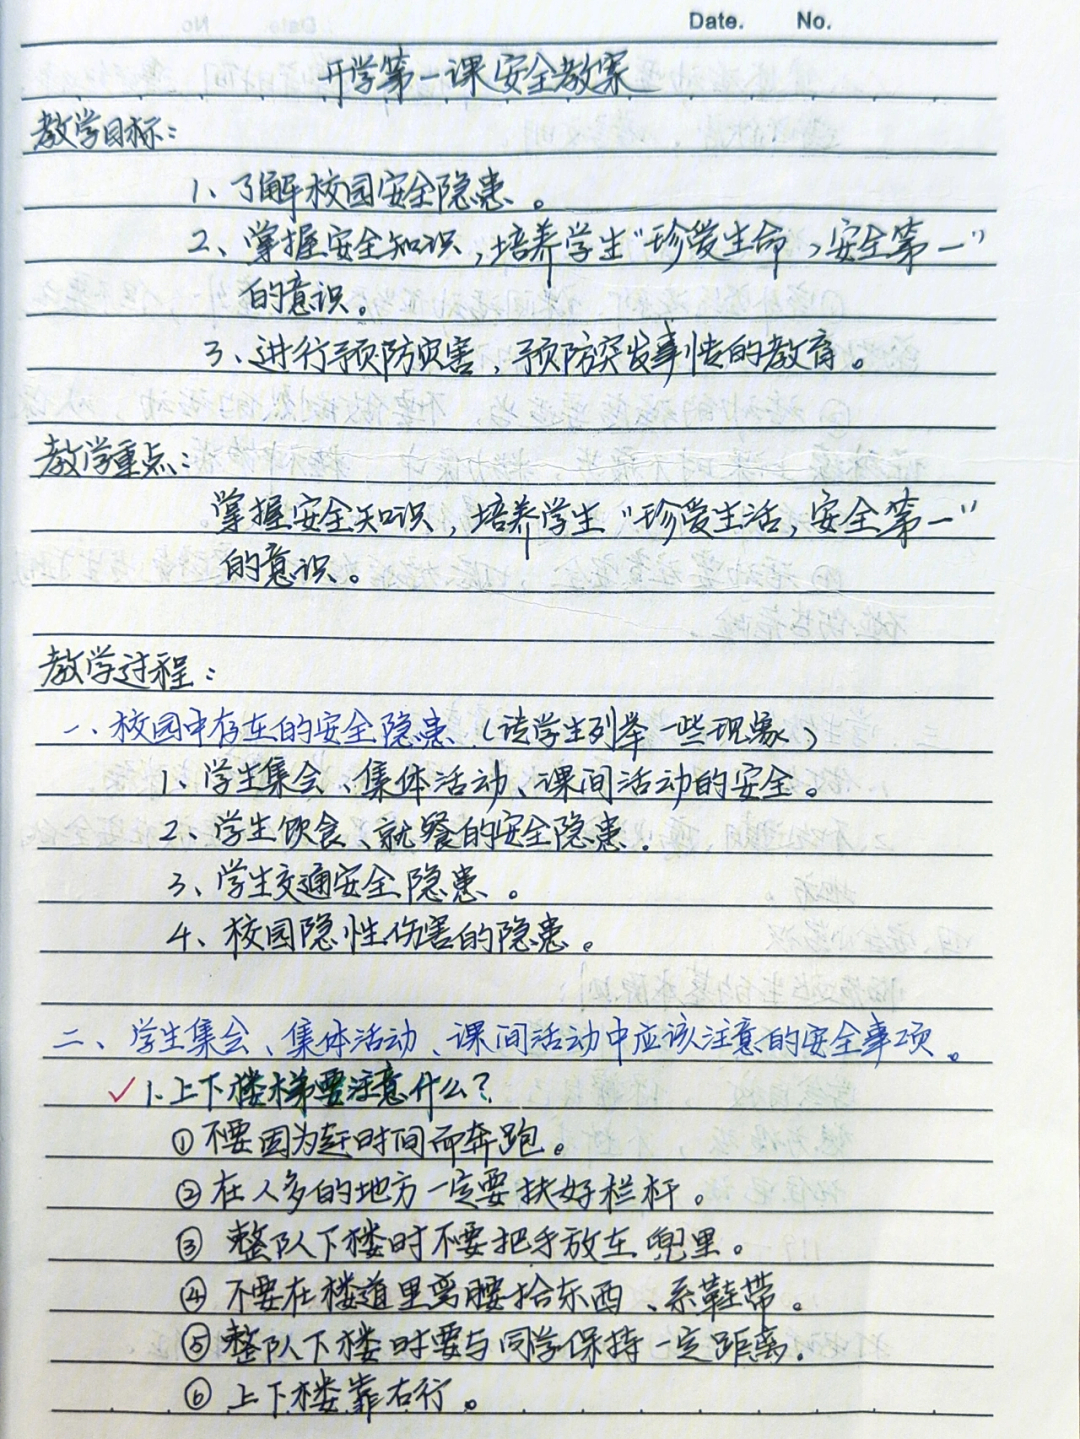 Date. No.
开学第一课安全教案
教学目标：
1、了解校园安全隐患。
2、掌握安全知识，培养学生“珍爱生命，安全第一”
的意识。
3、进行预防灾害，预防突发事情的教育。
教学重点：
掌握安全知识，培养学生“珍爱生活，安全第一”
的意识。
教学过程：
一、校园中存在的安全隐患（请学生列举一些现象）
1、学生集会、集体活动、课间活动的安全。
2、学生饮食、就餐的安全隐患。
3、学生交通安全隐患。
4、校园隐性伤害的隐患。
二、学生集会、集体活动、课间活动中应该注意的安全事项。
✓1.上下楼梯要注意什么？
①不要因为赶时间而奔跑。
②在人多的地方一定要扶好栏杆。
③整队下楼时不要把手放在兜里。
④不要在楼道里弯腰拾东西、系鞋带。
⑤整队下楼时要与同学保持一定距离。
⑥上下楼靠右行。